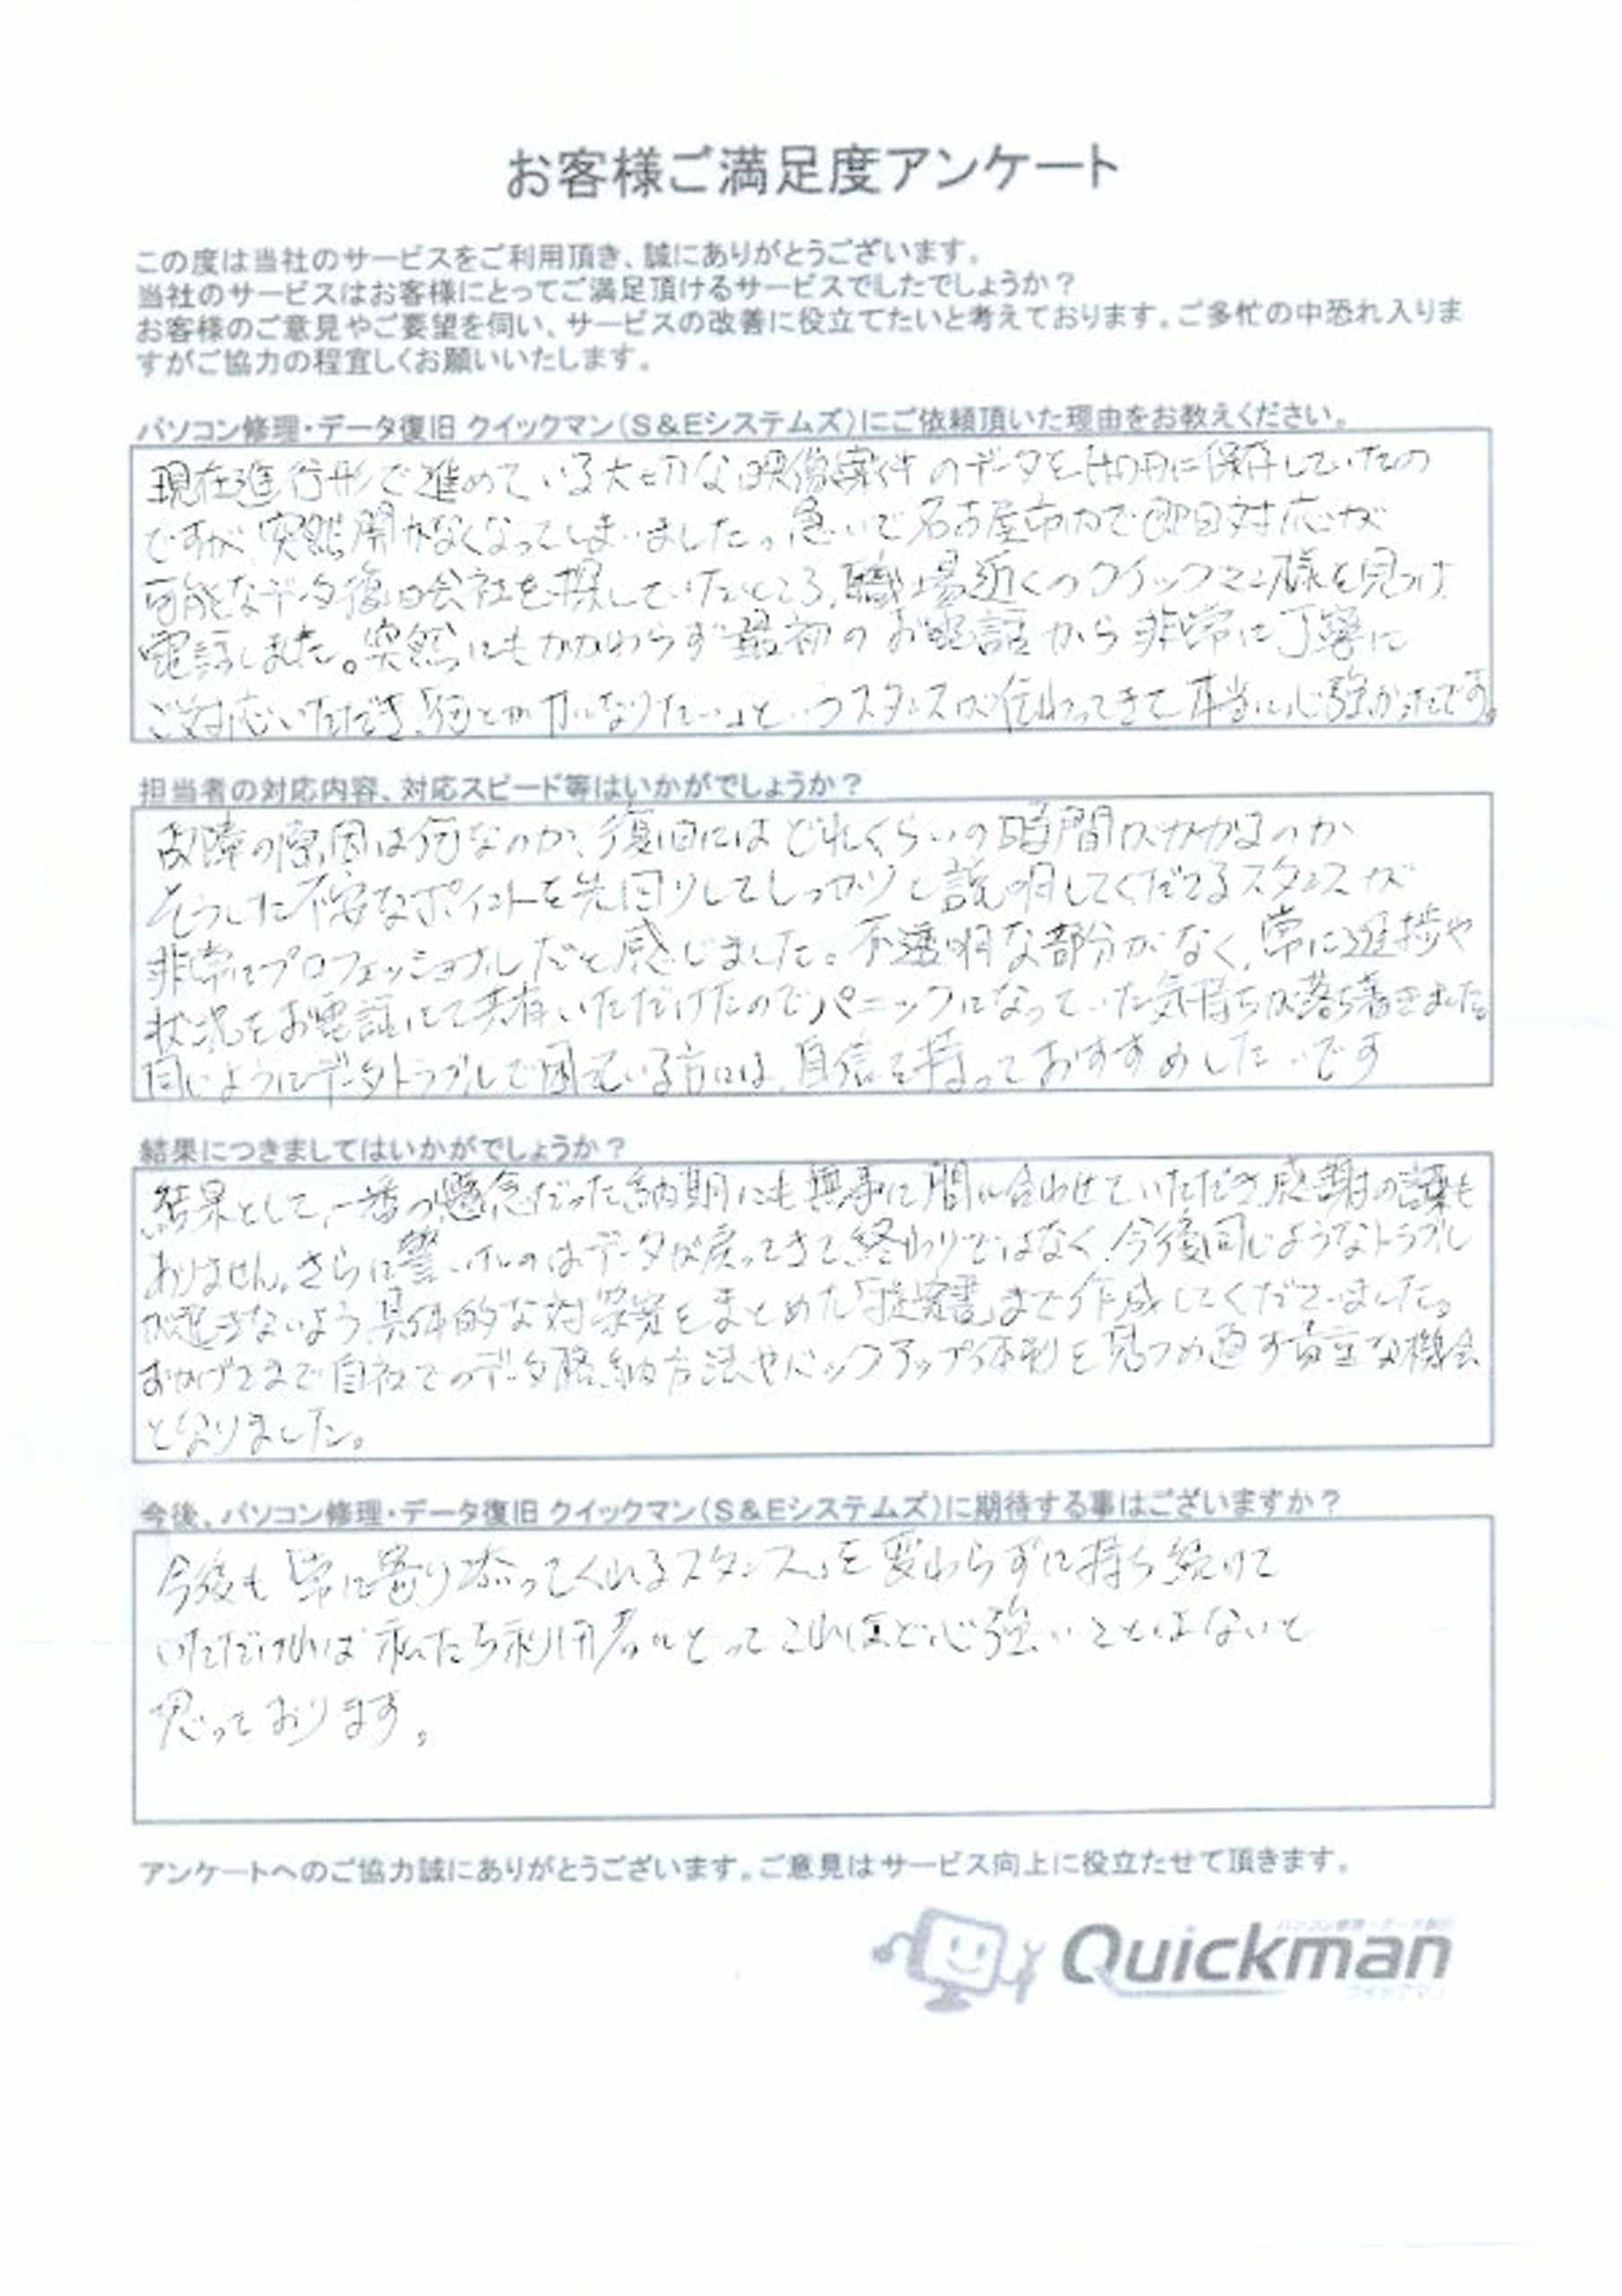 お客様ご満足度アンケート
この度は当社のサービスをご利用頂き、誠にありがとうございます。
当社のサービスはお客様にとってご満足頂けるサービスでしたでしょうか？
お客様のご意見やご要望を伺い、サービスの改善に役立てたいと考えております。ご多忙の中恐れ入りま
すがご協力の程宜しくお願いいたします。
パソコン修理・データ復旧 クイックマン（S＆Eシステムズ）にご依頼頂いた理由をお教えください。
現在進行形で進めている大切な映像案件のデータを 内に保存していたの
ですが 突然開かなくなってしまいました。急いで名古屋市内で即日対応が
可能なデータ復旧会社を探していたところ、職場近くのクイックマン様を見つけ
電話しました。突然にもかかわらず最初のお電話から非常に丁寧に
ご対応いただき、「何とか力になりたい」というスタンスが伝わってきて本当に心強かったです。
担当者の対応内容、対応スピード等はいかがでしょうか？
故障の原因は何なのか、復旧にはどれくらいの時間がかかるのか
そうした不安なポイントを先回りしてしっかりと説明してくださるスタンスが
非常にプロフェッショナルだと感じました。不透明な部分がなく、常に進捗や
状況をお電話にて共有いただけたのでパニックになっていた気持ちが落ち着きました。
同じようにデータトラブルで困っている方には、自信を持っておすすめしたいです
結果につきましてはいかがでしょうか？
結果として、一番の懸念だった納期にも無事に間に合わせていただき感謝の言葉も
ありません。さらに驚いたのはデータが戻ってきて終わりではなく、今後同じようなトラブル
が起きないよう具体的な対策案をまとめた「提案書」まで作成してくださいました。
おかげさまで自社でのデータ格納方法やバックアップ体制を見つめ直す貴重な機会
となりました。
今後、パソコン修理・データ復旧 クイックマン（S＆Eシステムズ）に期待する事はございますか？
今後も「常に寄り添ってくれるスタンス」を変わらずに持ち続けて
いただければ私たち利用者にとってこれほど心強いことはないと
思っております。
アンケートへのご協力誠にありがとうございます。ご意見はサービス向上に役立たせて頂きます。
パソコン修理・データ復旧
Quickman
クイックマン